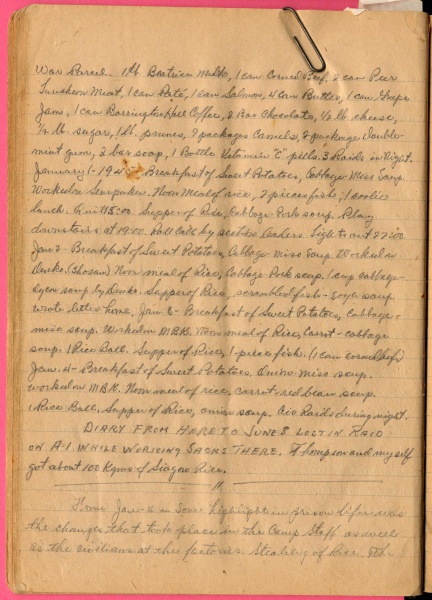 was Pared. 1 lb Beatrice milk, 1 can Corned Beef, 2 can Peer
Luncheon Meat, 1 can Paté, 1 can Salmon, 4 can Butter, 1 can Grape
Jam, 1 can Barrington Hall Coffee, 2 Bar Chocolate, ½ lb cheese,
½ lb. sugar, 1 lb. prunes, 7 packages Camels, 2 package Double-
mint gum, 2 bar soap, 1 Bottle Vitamin "C" pills. 3 Raids in Night.
January 1-194 Breakfast of Sweet Potatoes, Cabbage Miso Soup.
Worked on. Noon Meal of rice, 2 pieces fish, 1 coolie
lunch. Quit 15:00. Supper of Rice, Cabbage-Pork soup. Play
downstairs at 19:00. Roll call by section leaders. Lights out 22:00
Jan 2 - Breakfast of Sweet Potatoes, Cabbage Miso Soup. Worked in
Denko. (Chosan) Noon meal of Rice, Cabbage Pork soup. 1 cup cabbage-
soya soup by Denko. Supper of Rice, scrambled fish - soya soup.
wrote letter home. Jan. 3 - Breakfast of Sweet Potatoes, Cabbage -
miso soup. Worked on M.B.K. Noon meal of Rice, Carrot - cabbage
soup. 1 Rice Ball. Supper of Rice, 1 - piece fish. (1 can corned beef)
Jan. 4 - Breakfast of Sweet Potatoes. Onion miso soup.
worked on M.B.K. Noon meal of rice, carrot - red bean soup.
1 Rice Ball. Supper of Rice, onion soup. Air Raids during night.
DIARY FROM HERE TO JUNE 8 LOST IN RAID
ON A-1 WHILE WORKING SACKS THERE. Thompson and my self
got about 100 Kgms of Siagon Rice.
11
From Jan-4 on Some highlights in prison life was
the changes that took place in the Camp Staff as well
as the civilians at the factories. Stealing of Rice. The